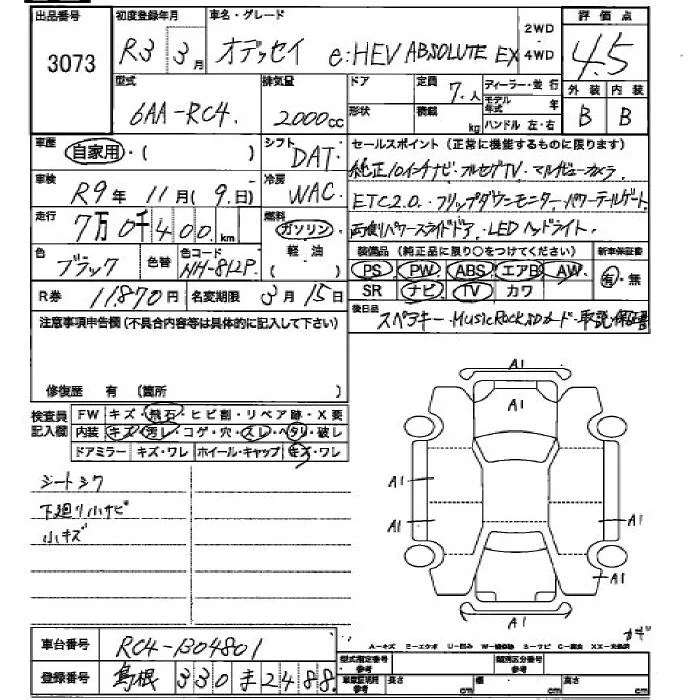 出品番号 初度登録年月 車名・グレード 2WD 評価点
3073 R3年3月 オデッセイ e:HEV ABSOLUTE EX 4WD 4.5
型式 排気量 ドア 定員 7.人 ディーラー・並行 外装 内装
6AA-RC4. 2000cc 形状 積載 kg モデル年式 年 B B
ハンドル 左・右
車歴 自家用・( ) シフト DAT. セールスポイント(正常に機能するものに限ります)
純正10インチナビ・フルセグTV・マルチビューカメラ
車検 R9年11月(9日) 冷房 WAC
ETC2.0.・フリップダウンモニター・パワーテールゲート
走行 7万0千400km 燃料 ガソリン
両側パワースライドドア・LEDヘッドライト.
軽油 装備品(純正品に限り○をつけてください) 新車保証書
色 ブラック 色替 色コード NH-812P. PS PW ABS エアB AW 有・無
R券 11.870円 名変期限 3月15日 SR ナビ TV カワ
後日品 スペアキー・MUSIC ROCK,SDカード・取説・保証書
注意事項申告欄(不具合内容等は具体的に記入して下さい)
修復歴 有 (箇所 )
検査員記入欄 FW キズ・飛石・ヒビ割・リペア跡・X要
内装 キズ・汚レ・コゲ・穴・スレ・ヘタリ・破レ
ドアミラー キズ・ワレ ホイール・キャップ キズ・ワレ
A1
A1
シートシワ
A1
下廻り小サビ
A1 A1
小キズ
A1
A1
A-キズ E-エクボ U-凹み
車台番号 RC4-1304801
型式指定番号 参考 類別区分番号 参考
登録番号 島根 330 ま 2488
車庫証明 参考 長さ cm 幅 cm 高さ cm